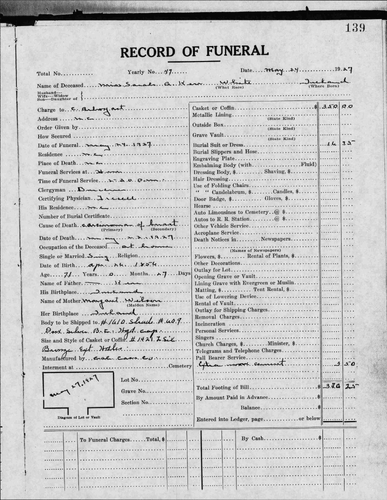 139
RECORD OF FUNERAL
Total No. Yearly No. 47 Date May 24 1927
Name of Deceased Miss Sarah A. Kerr White Ireland
(What Race) (Where Born)
Husband—
Wife—Widow
Son—Daughter of
Charge to
Address N.C.
Order Given by
How Secured
Date of Funeral May 24 1927
Residence N.C.
Place of Death N.C.
Funeral Services at Home
Time of Funeral Service
Clergyman
Certifying Physician
His Residence N.C.
Number of Burial Certificate
Cause of Death Carcinoma of breast
(Primary) (Secondary)
Date of Death May 1927
Occupation of the Deceased at home
Single or Married Sing Religion
Date of Birth Apr. 1856
Age 71 Years 0 Months 27 Days
Name of Father Kerr
His Birthplace Ireland
Name of Mother Margaret Wilson
(Maiden Name)
Her Birthplace Ireland
Body to be Shipped to
Size and Style of Casket or Coffin
Manufactured by
Interment at Cemetery
Lot No.
Grave No.
Section No.
May 24, 1927
Diagram of Lot or Vault
Casket or Coffin $ 350 00
Metallic Lining
(State Kind)
Outside Box
(State Kind)
Grave Vault
(State Kind)
Burial Suit or Dress 16 25
Burial Slippers and Hose
Engraving Plate
Embalming Body (with Fluid)
Dressing Body, $ Shaving, $
Hair Dressing
Use of Folding Chairs
" " Candelabrum, $ Candles, $
Door Badge, $ Gloves, $
Hearse
Auto Limousines to Cemetery @ $
Autos to R. R. Station @ $
Other Vehicle Service
Aeroplane Service
Death Notices in Newspapers
(Names of Newspapers)
Flowers, $ Rental of Plants, $
Other Decorations
Outlay for Lot
Opening Grave or Vault
Lining Grave with Evergreen or Muslin
Matting, $ Tent Rental, $
Use of Lowering Device
Rental of Vault
Outlay for Shipping Charges
Removal Charges
Cremation
Personal Services
Singers
Church Charges, $ Minister, $
Telegrams and Telephone Charges
Pall Bearer Service
3 50
Total Footing of Bill $
By Amount Paid in Advance
Balance
Entered into Ledger, page or below $
To Funeral Charges Total $ By Cash $